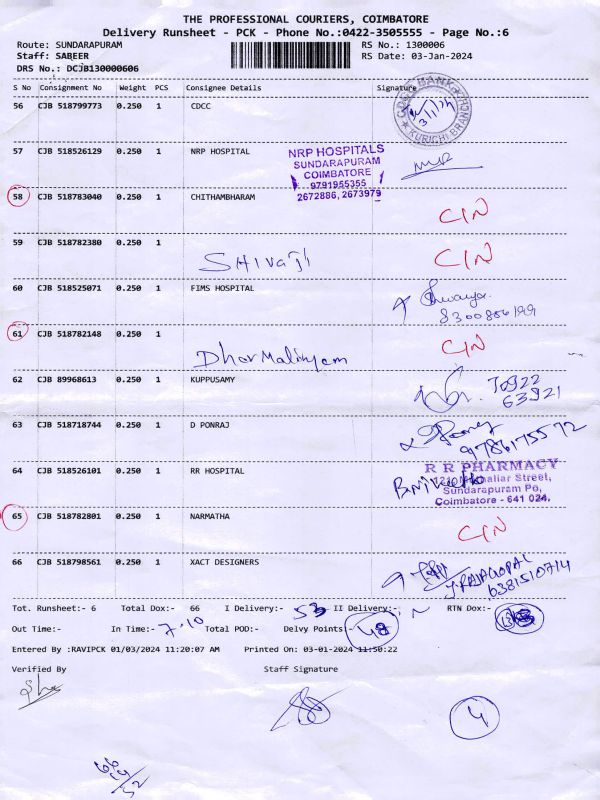 THE PROFESSIONAL COURIERS, COIMBATORE
Delivery Runsheet - PCK - Phone No.:0422-3505555 - Page No.:6
Route: SUNDARAPURAM RS No.: 1300006
Staff: SABEER RS Date: 03-Jan-2024
DRS No.: DCJB130000606
S No Consignment No Weight PCS Consignee Details Signature
56 CJB 518799773 0.250 1 CDCC
BANK KURICHI BRANCH
3/1/24
57 CJB 518526129 0.250 1 NRP HOSPITAL
NRP HOSPITALS
SUNDARAPURAM
COIMBATORE
9791955355
2672886, 2673979
58 CJB 518783040 0.250 1 CHITHAMBHARAM CIN
59 CJB 518782380 0.250 1 SHIVAJI CIN
60 CJB 518525071 0.250 1 FIMS HOSPITAL
61 CJB 518782148 0.250 1 CIN
62 CJB 89968613 0.250 1 KUPPUSAMY
63921
63 CJB 518718744 0.250 1 D PONRAJ
9786175572
64 CJB 518526101 0.250 1 RR HOSPITAL
R R PHARMACY
Street,
Sundarapuram Po,
Coimbatore - 641 024.
65 CJB 518782801 0.250 1 NARMATHA CIN
66 CJB 518798561 0.250 1 XACT DESIGNERS
J. RAJAGOPAL
6381510714
Tot. Runsheet:- 6 Total Dox:- 66 I Delivery:- 53 II Delivery:- RTN Dox:-
Out Time:- In Time:- 7-10 Total POD:- Delvy Points:- 48
Entered By :RAVIPCK 01/03/2024 11:20:07 AM Printed On: 03-01-2024 11:50:22
Verified By Staff Signature
4
66
14
52